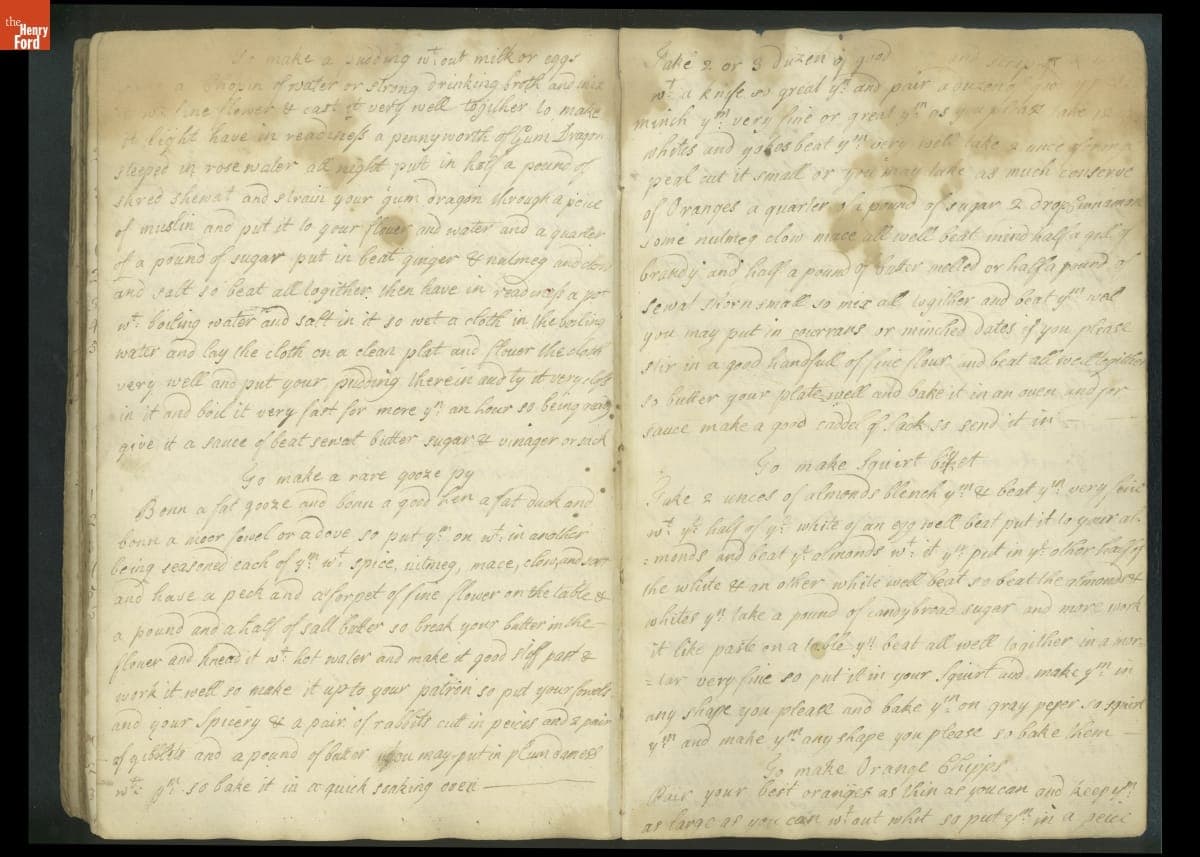 the Henry Ford
To make a pudding wt out milk or eggs
a Chopin of water or strong drinking broth and mix
it wt fine flower & cast it very well togither to make
it light have in readiness a pennyworth of Gum Dragon
steeped in rose water all night put in half a pound of
shred shewat and strain your gum dragon through a peice
of muslin and put it to your flouer and water and a quarter
of a pound of sugar put in beat ginger & nutmeg and clow
and salt so beat all togither then have in readiness a pot
wt: boiling water and salt in it so wet a cloth in the boiling
water and lay the cloth on a clean plat and flouer the cloth
very well and put your pudding therein and ty it very closs
in it and boil it very fast for more yn an hour so being ready
give it a sauce of beat sewat butter sugar & vinager or sick
To make a rare gooze py
Bonn a fat gooze and bonn a good hen a fat duck and
bonn a moor fowel or a dove so put ym on wt: in another
being seasoned each of ym wt spice, nutmeg, mace, clow, and salt
and have a peck and a forpet of fine flower on the table &
a pound and a half of salt butter so break your butter in the
flouer and knead it wt hot water and make it good stiff past &
work it well so make it up to your patron so put your fowels
and your spicery & a pair of rabbits cut in peices and 2 pair
of giblets and a pound of butter you may put in plumdamess
wt: ym: so bake it in a quick soaking oven
Take 2 or 3 duzen of good and
wt a knife so great ym and pair a duzen
minch ym very fine or great ym as you please take
whites and yokes beat ym very well take 2 unce of orange
peal cut it small or you may take as much conserve
of Oranges a quarter of a pound of sugar 2 drop Cinnamon
some nutmeg clow mace all well beat mind half a gill of
brandy and half a pound of butter melled or half a pound of
sewat shorn small so mix all togither and beat ym wel
you may put in courrans or minched dates if you please
stir in a good handfull of fine flour and beat all well togither
so butter your plate well and bake it in an oven and for
sauce make a good caddel of Sack so send it in
To make Squirt bisket
Take 2 unces of almonds blench ym & beat ym very fine
wt ye half of ye white of an egg well beat put it to your al-
=monds and beat ye almonds wt it yn put in ye other half of
the white & an other white well beat so beat the almonds &
whites yn take a pound of candybroad sugar and more work
it like paste on a table yn beat all well togither in a mor=
=tar very fine so put it in your Squirt and make ym in
any shape you please and bake ym on gray peper so squirt
ym and make ym any shape you please so bake them
To make Orange Chipps
Pair your best oranges as thin as you can and keep ym
as large as you can wt out whit so put ym in a peice